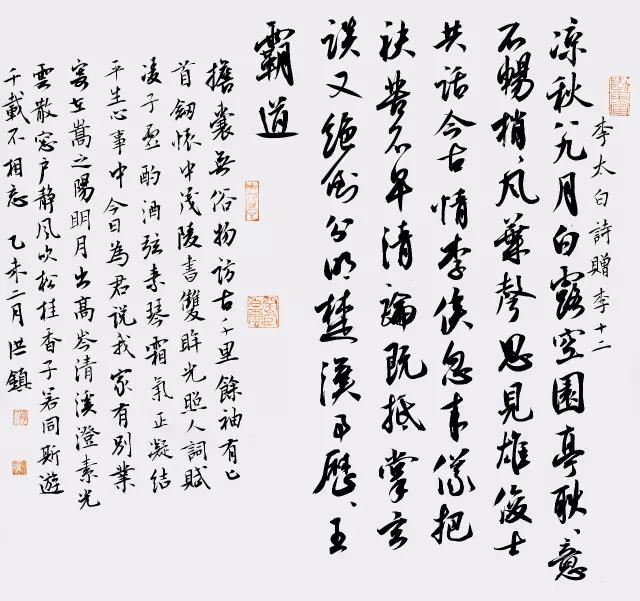 李太白詩贈李十二
凉秋八九月白露空園亭耿、意
不暢捎、风葉聲思見雄俊士
共話今古情李侯忽来儀把
袂苦不早清論既抵掌玄
談又绝倒分明楚漢事歷、王
霸道
擔囊無俗物訪古千里餘袖有匕
首劒懷中茂陵書雙眸光照人詞賦
凌子虛酌酒弦素琴霜氣正凝结
平生心事中今日為君說我家有别業
寄在嵩之陽明月出高岑清溪澄素光
雲散窓户静风吹松桂香子若同斯遊
千載不相忘 乙未二月 洪鎮